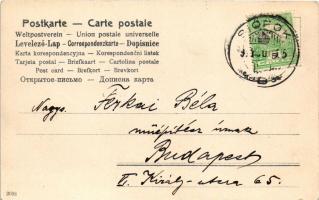 Postkarte — Carte postale
Weltpostverein — Union postale universelle
Levelező-Lap — Correspondenzkarte — Dopisnice
Karta korespondencyjna — Korespondenční lístek
Tarjeta postal — Briefkaart — Cartolina postale
Post card — Brefkort — Brevkort
Открытое письмо — Дописна карта
SIÓFOK
Nagys. Ferkai Béla
műépítész úrnak
Budapest
Király-utcza 65.